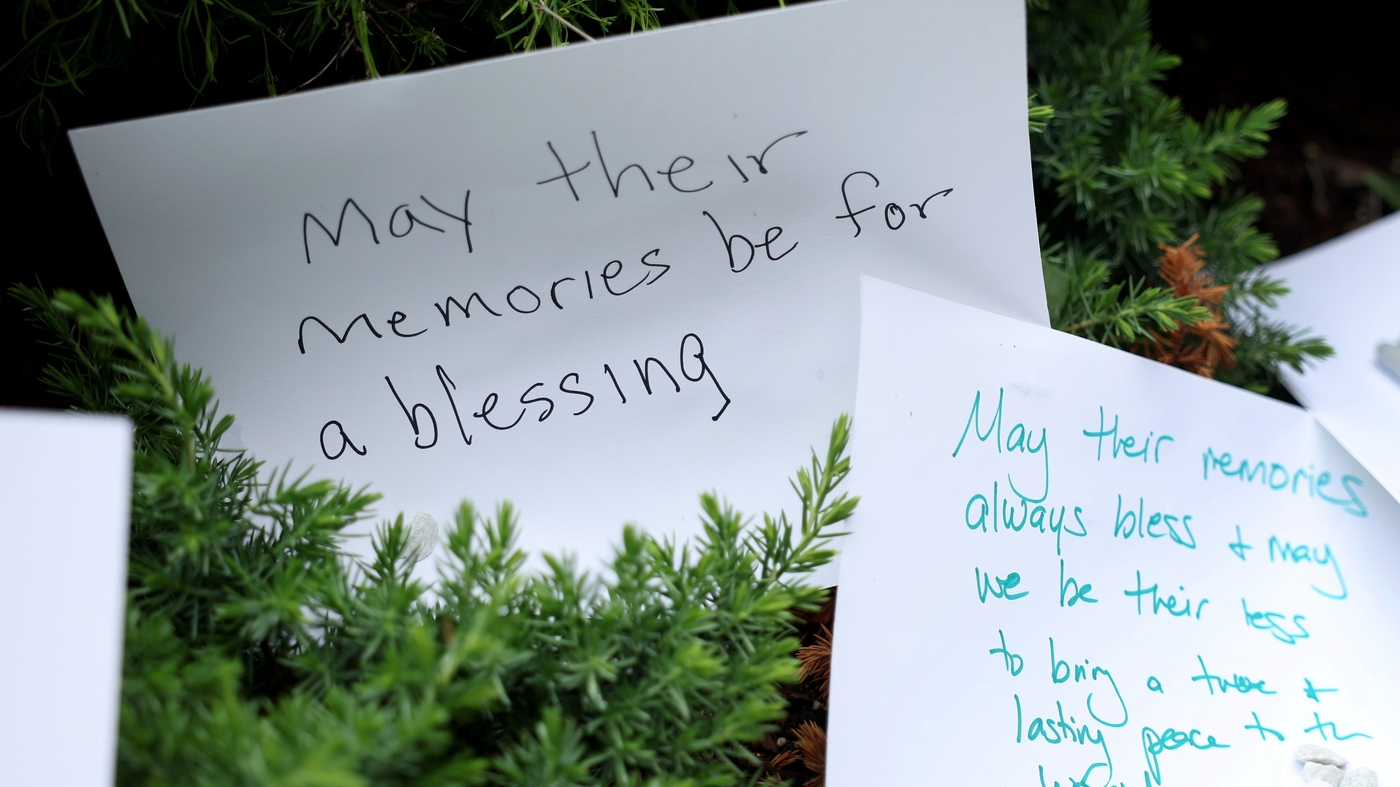 May their
memories be for
a blessing
May their memories
always bless & may
we be their legs
to bring a true &
lasting peace to th